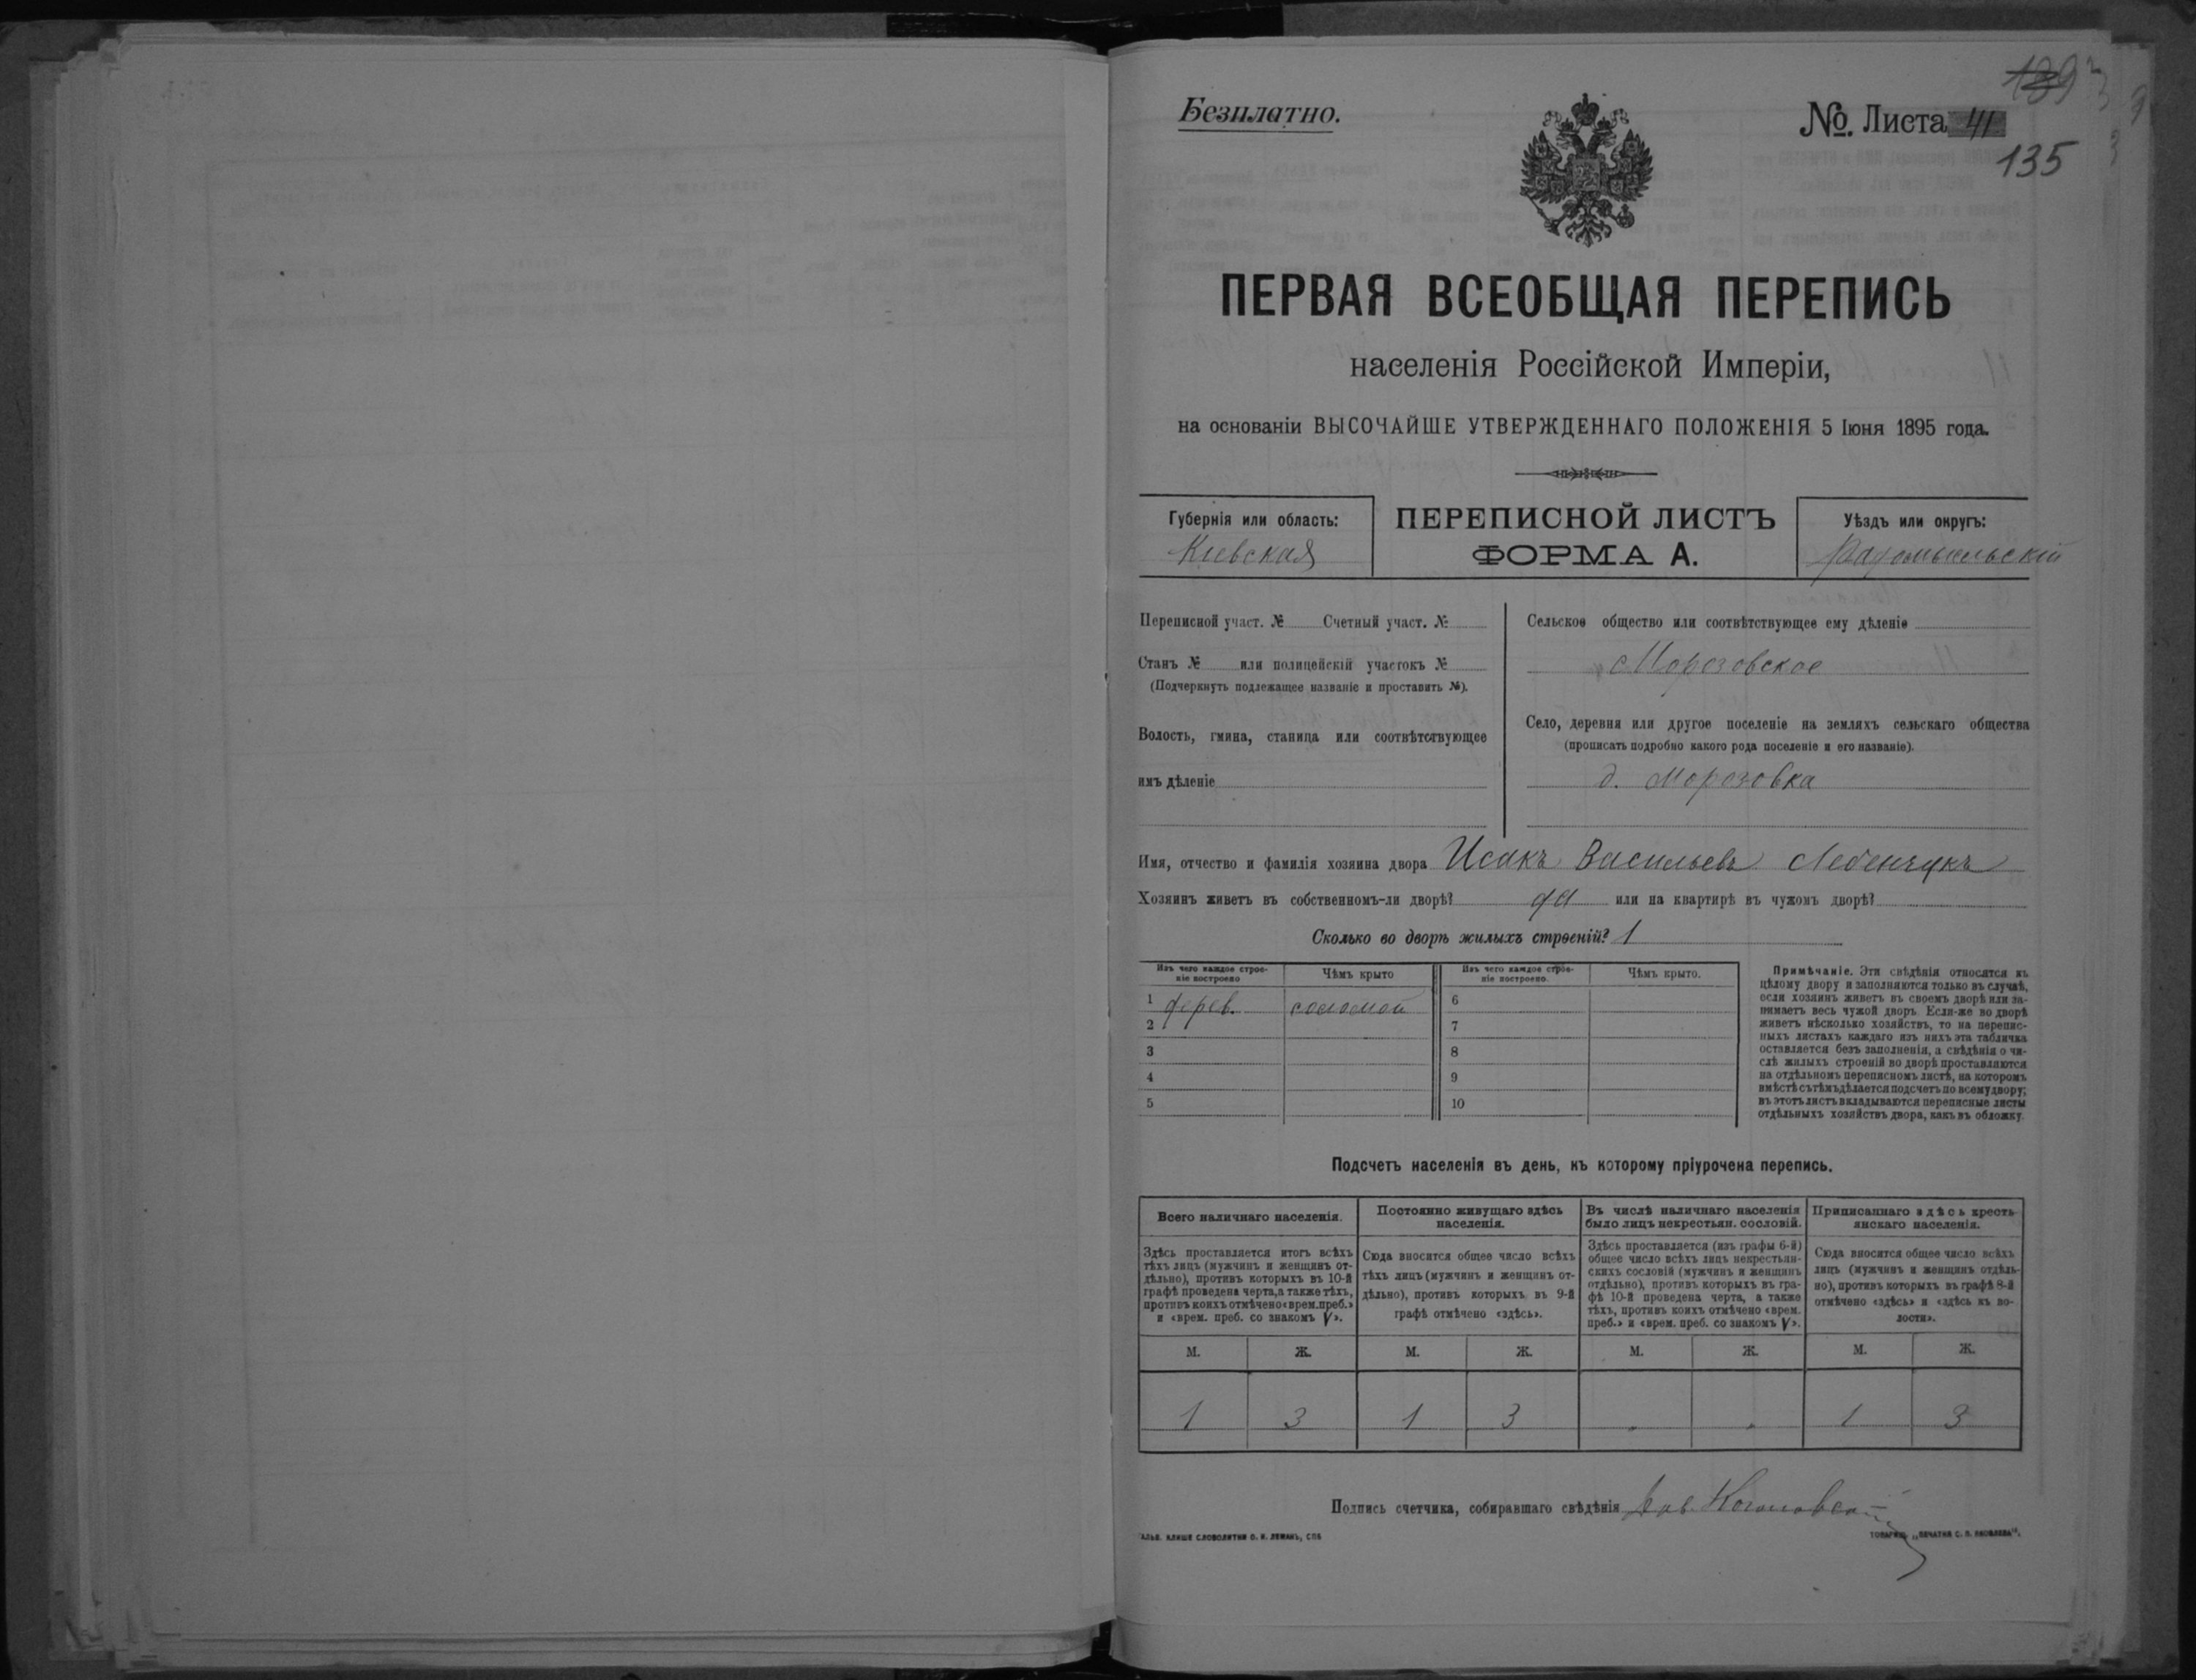 Безплатно.
1893
№. Листа 41
135
ПЕРВАЯ ВСЕОБЩАЯ ПЕРЕПИСЬ
населенія Россійской Имперіи,
на основаніи ВЫСОЧАЙШЕ УТВЕРЖДЕННАГО ПОЛОЖЕНІЯ 5 Іюня 1895 года.
Губернія или область:
Кіевская
ПЕРЕПИСНОЙ ЛИСТЪ
ФОРМА А.
Уѣздъ или округъ:
Радомысльскій
Переписной участ. № Счетный участ. №
Станъ № или полицейскій участокъ №
(Подчеркнуть подлежащее названіе и проставить №).
Волость, гмина, станица или соотвѣтствующее
имъ дѣленіе
Сельское общество или соотвѣтствующее ему дѣленіе
Морозовское
Село, деревня или другое поселеніе на земляхъ сельскаго общества
(прописать подробно какого рода поселеніе и его названіе).
д. Морозовка
Имя, отчество и фамилія хозяина двора Исакъ Васильевъ Лебенчукъ
Хозяинъ живетъ въ собственномъ-ли дворѣ? да или на квартирѣ въ чужомъ дворѣ?
Сколько во дворѣ жилыхъ строеній? 1
Изъ чего каждое строе-
ніе построено
Чѣмъ крыто
Изъ чего каждое строе-
ніе построено.
Чѣмъ крыто.
1 дерев. соломой 6
2 7
3 8
4 9
5 10
Примѣчаніе. Эти свѣдѣнія относятся къ
цѣлому двору и заполняются только въ случаѣ,
если хозяинъ живетъ въ своемъ дворѣ или за-
нимаетъ весь чужой дворъ. Если-же во дворѣ
живетъ нѣсколько хозяйствъ, то на перепис-
ныхъ листахъ каждаго изъ нихъ эта табличка
оставляется безъ заполненія, а свѣдѣнія о чи-
слѣ жилыхъ строеній во дворѣ проставляются
на отдѣльномъ переписномъ листѣ, на которомъ
вмѣстѣ съ тѣмъ дѣлается подсчетъ по всему двору;
въ этотъ листъ вкладываются переписные листы
отдѣльныхъ хозяйствъ двора, какъ въ обложку.
Подсчетъ населенія въ день, къ которому пріурочена перепись.
Всего наличнаго населенія.
Здѣсь проставляется итогъ всѣхъ
тѣхъ лицъ (мужчинъ и женщинъ от-
дѣльно), противъ которыхъ въ 10-й
графѣ проведена черта, а также тѣхъ,
противъ коихъ отмѣчено «врем. преб.»
и «врем. преб. со знакомъ V».
Постоянно живущаго здѣсь
населенія.
Сюда вносится общее число всѣхъ
тѣхъ лицъ (мужчинъ и женщинъ от-
дѣльно), противъ которыхъ въ 9-й
графѣ отмѣчено «здѣсь».
Въ числѣ наличнаго населенія
было лицъ некрестьян. сословій.
Здѣсь проставляется (изъ графы 6-й)
общее число всѣхъ лицъ некрестьян-
скихъ сословій (мужчинъ и женщинъ
отдѣльно), противъ которыхъ въ гра-
фѣ 10-й проведена черта, а также
тѣхъ, противъ коихъ отмѣчено «врем.
преб.» и «врем. преб. со знакомъ V».
Приписаннаго здѣсь кресть-
янскаго населенія.
Сюда вносится общее число всѣхъ
лицъ (мужчинъ и женщинъ отдѣль-
но), противъ которыхъ въ графѣ 8-й
отмѣчено «здѣсь» и «здѣсь къ во-
лости».
М. Ж. М. Ж. М. Ж. М. Ж.
1 3 1 3 „ „ 1 3
Подпись счетчика, собиравшаго свѣдѣнія
ГАЛЬВ. КЛИШЕ СЛОВОЛИТНИ О. И. ЛЕМАНЪ, СПБ
ТОВАРИЩ. „ПЕЧАТНЯ С. П. ЯКОВЛЕВА“.